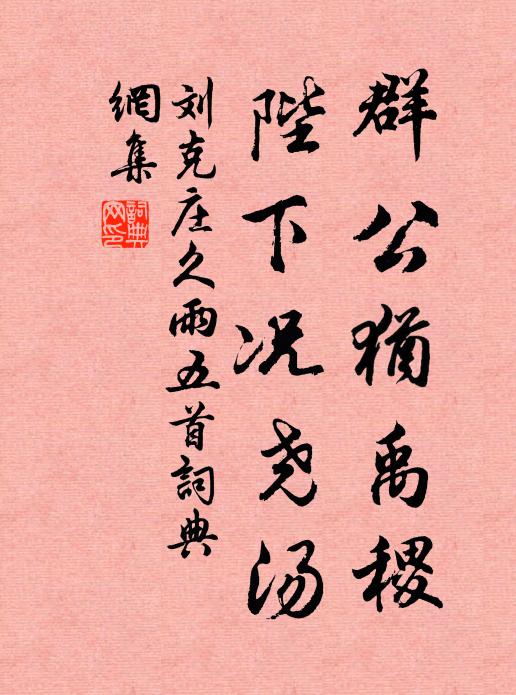 群公犹禹稷
陛下况尧汤
刘克庄久雨五首詞典
網集
詞典
网印